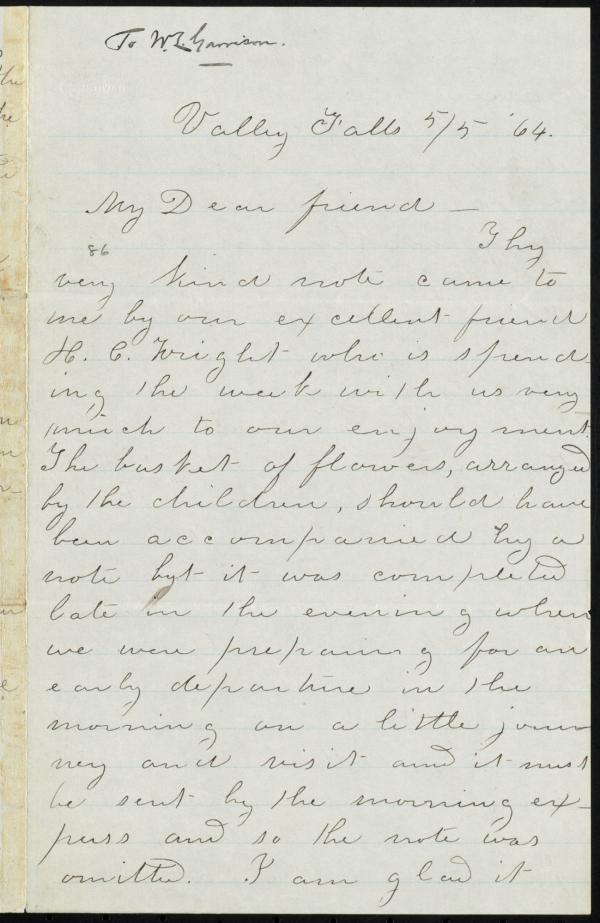 To W. L. Garrison.
Valley Falls 5/5 '64.
My Dear friend —
Thy
86
very kind note came to
me by our excellent friend
H. C. Wright who is spend-
ing the week with us very
much to our enjoyment.
The basket of flowers, arranged
by the children, should have
been accompanied by a
note but it was completed
late in the evening when
we were preparing for an
early departure in the
morning on a little jour
ney and visit and it must
be sent by the morning ex-
press and so the note was
omitted. I am glad it